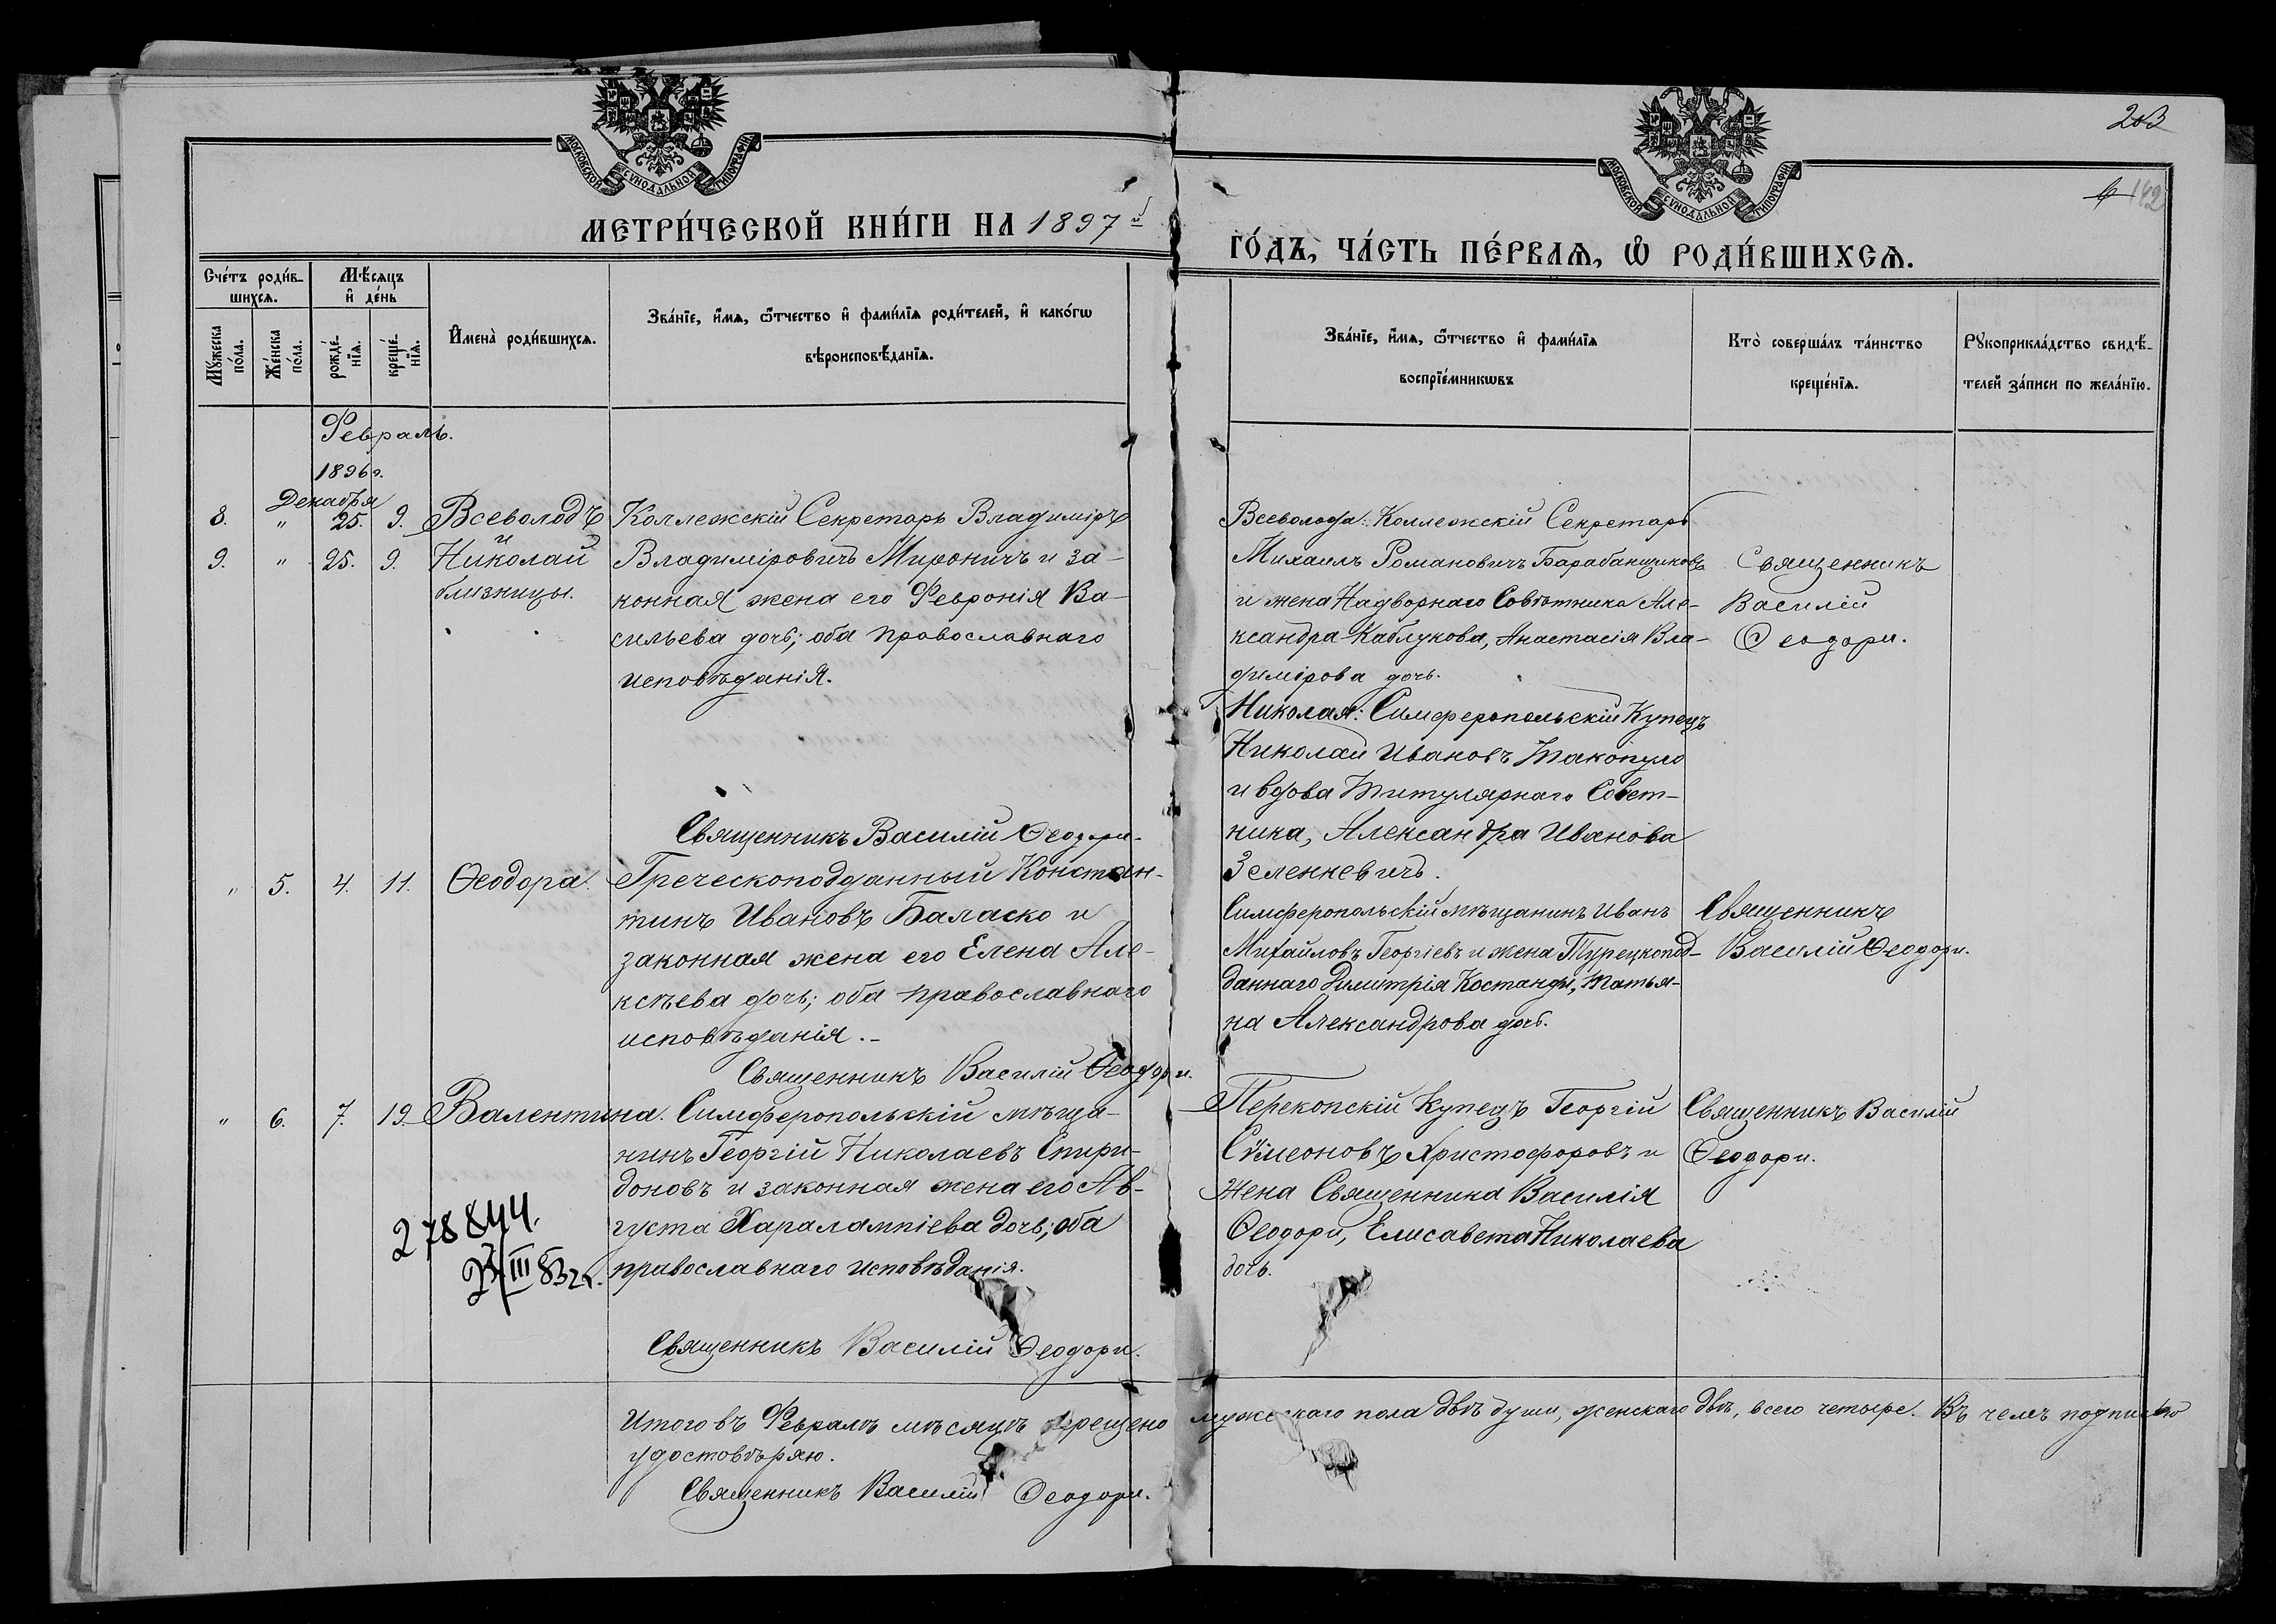 203
6 142
МОСКОВСКОЙ СУНОДАЛЬНОЙ ТИПОГРАФІИ
МОСКОВСКОЙ СУНОДАЛЬНОЙ ТИПОГРАФІИ
МЕТРИ́ЧЕСКОЙ КНИ́ГИ НА 1897й
ГО́ДЪ, ЧА́СТЬ ПЕ́РВАѦ, Ѡ РОДИ́ВШИХСѦ.
Сче́тъ роди́в-
шихсѧ.
Мѣ́сѧцъ
и҆ де́нь
Мꙋ́жеска
по́ла.
Же́нска
по́ла.
рожде́-
нїѧ.
креще́-
нїѧ.
И҆мена̀ роди́вшихсѧ.
Зва́нїе, и҆́мѧ, ѻ҆́тчество и҆ фами́лїѧ роди́телей, и҆ како́гѡ
вѣроисповѣ́данїѧ.
Зва́нїе, и҆́мѧ, ѻ҆́тчество и҆ фами́лїѧ
воспрїе́мникѡвъ
Кто̀ соверша́лъ та́инство
креще́нїѧ.
Рꙋкоприкла́дство свидѣ́-
телей за́писи по жела́нїю.
Февраль.
1896 г.
Декабря
8. " 25. 9. Всеволодъ
и
9. " 25. 9. Николай
близницы.
Коллежскій Секретарь Владиміръ
Владиміровичъ Мироничъ и за-
конная жена его Февронія Ва-
сильева дочь; оба православнаго
исповѣданія.
Священникъ Василій Ѳеодори.
Всеволода: Коллежскій Секретарь
Михаилъ Романовичъ Барабанщиковъ
и жена Надворнаго Совѣтника Але-
ксандра Каблукова, Анастасія Вла-
димірова дочь.
Николая: Симферопольскій Купецъ
Николай Ивановъ Такопуло
и вдова Титулярнаго Совет-
ника, Александра Иванова
Зеленкевичъ.
Священникъ
Василій
Ѳеодори.
" 5. 4. 11. Ѳеодора.
Греческоподданный Констан-
тинъ Ивановъ Баласко и
законная жена его Елена Але-
ксѣева дочь; оба православнаго
исповѣданія.-
Священникъ Василій Ѳеодори.
Симферопольскій мѣщанинъ Иванъ
Михайловъ Георгіевъ и жена Турецкопод-
даннаго Димитрія Костанды, Татья-
на Александрова дочь.
Священникъ
Василій Ѳеодори.
" 6. 7. 19. Валентина.
Симферопольскій мѣща-
нинъ Георгій Николаевъ Спири-
доновъ и законная жена его Ав-
густа Харалампіева дочь; оба
православнаго исповѣданія.
Священникъ Василій Ѳеодори.
278844.
23/III 83 г.
Перекопскій Купецъ Георгій
Сѵмеоновъ Христофоровъ и
жена Священника Василія
Ѳеодори, Елисавета Николаева
дочь.
Священникъ Василій
Ѳеодори.
Итого въ Февралѣ мѣсяцѣ крещено мужескаго пола двѣ души, женскаго двѣ, всего четыре. Въ чемъ подписью
удостовѣряю.
Священникъ Василій Ѳеодори.